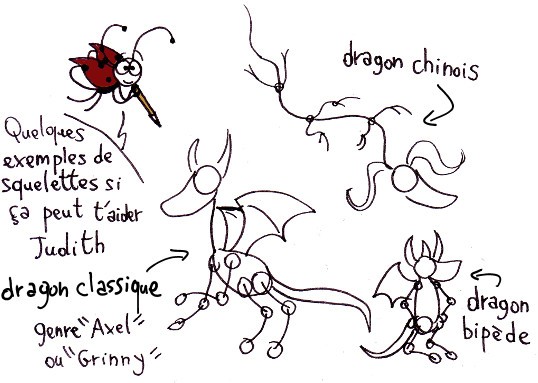 Quelques
exemples de
squelettes si
ça peut t'aider
Judith
dragon chinois
dragon classique
genre "Axel"
ou "Grinny"
dragon
bipède